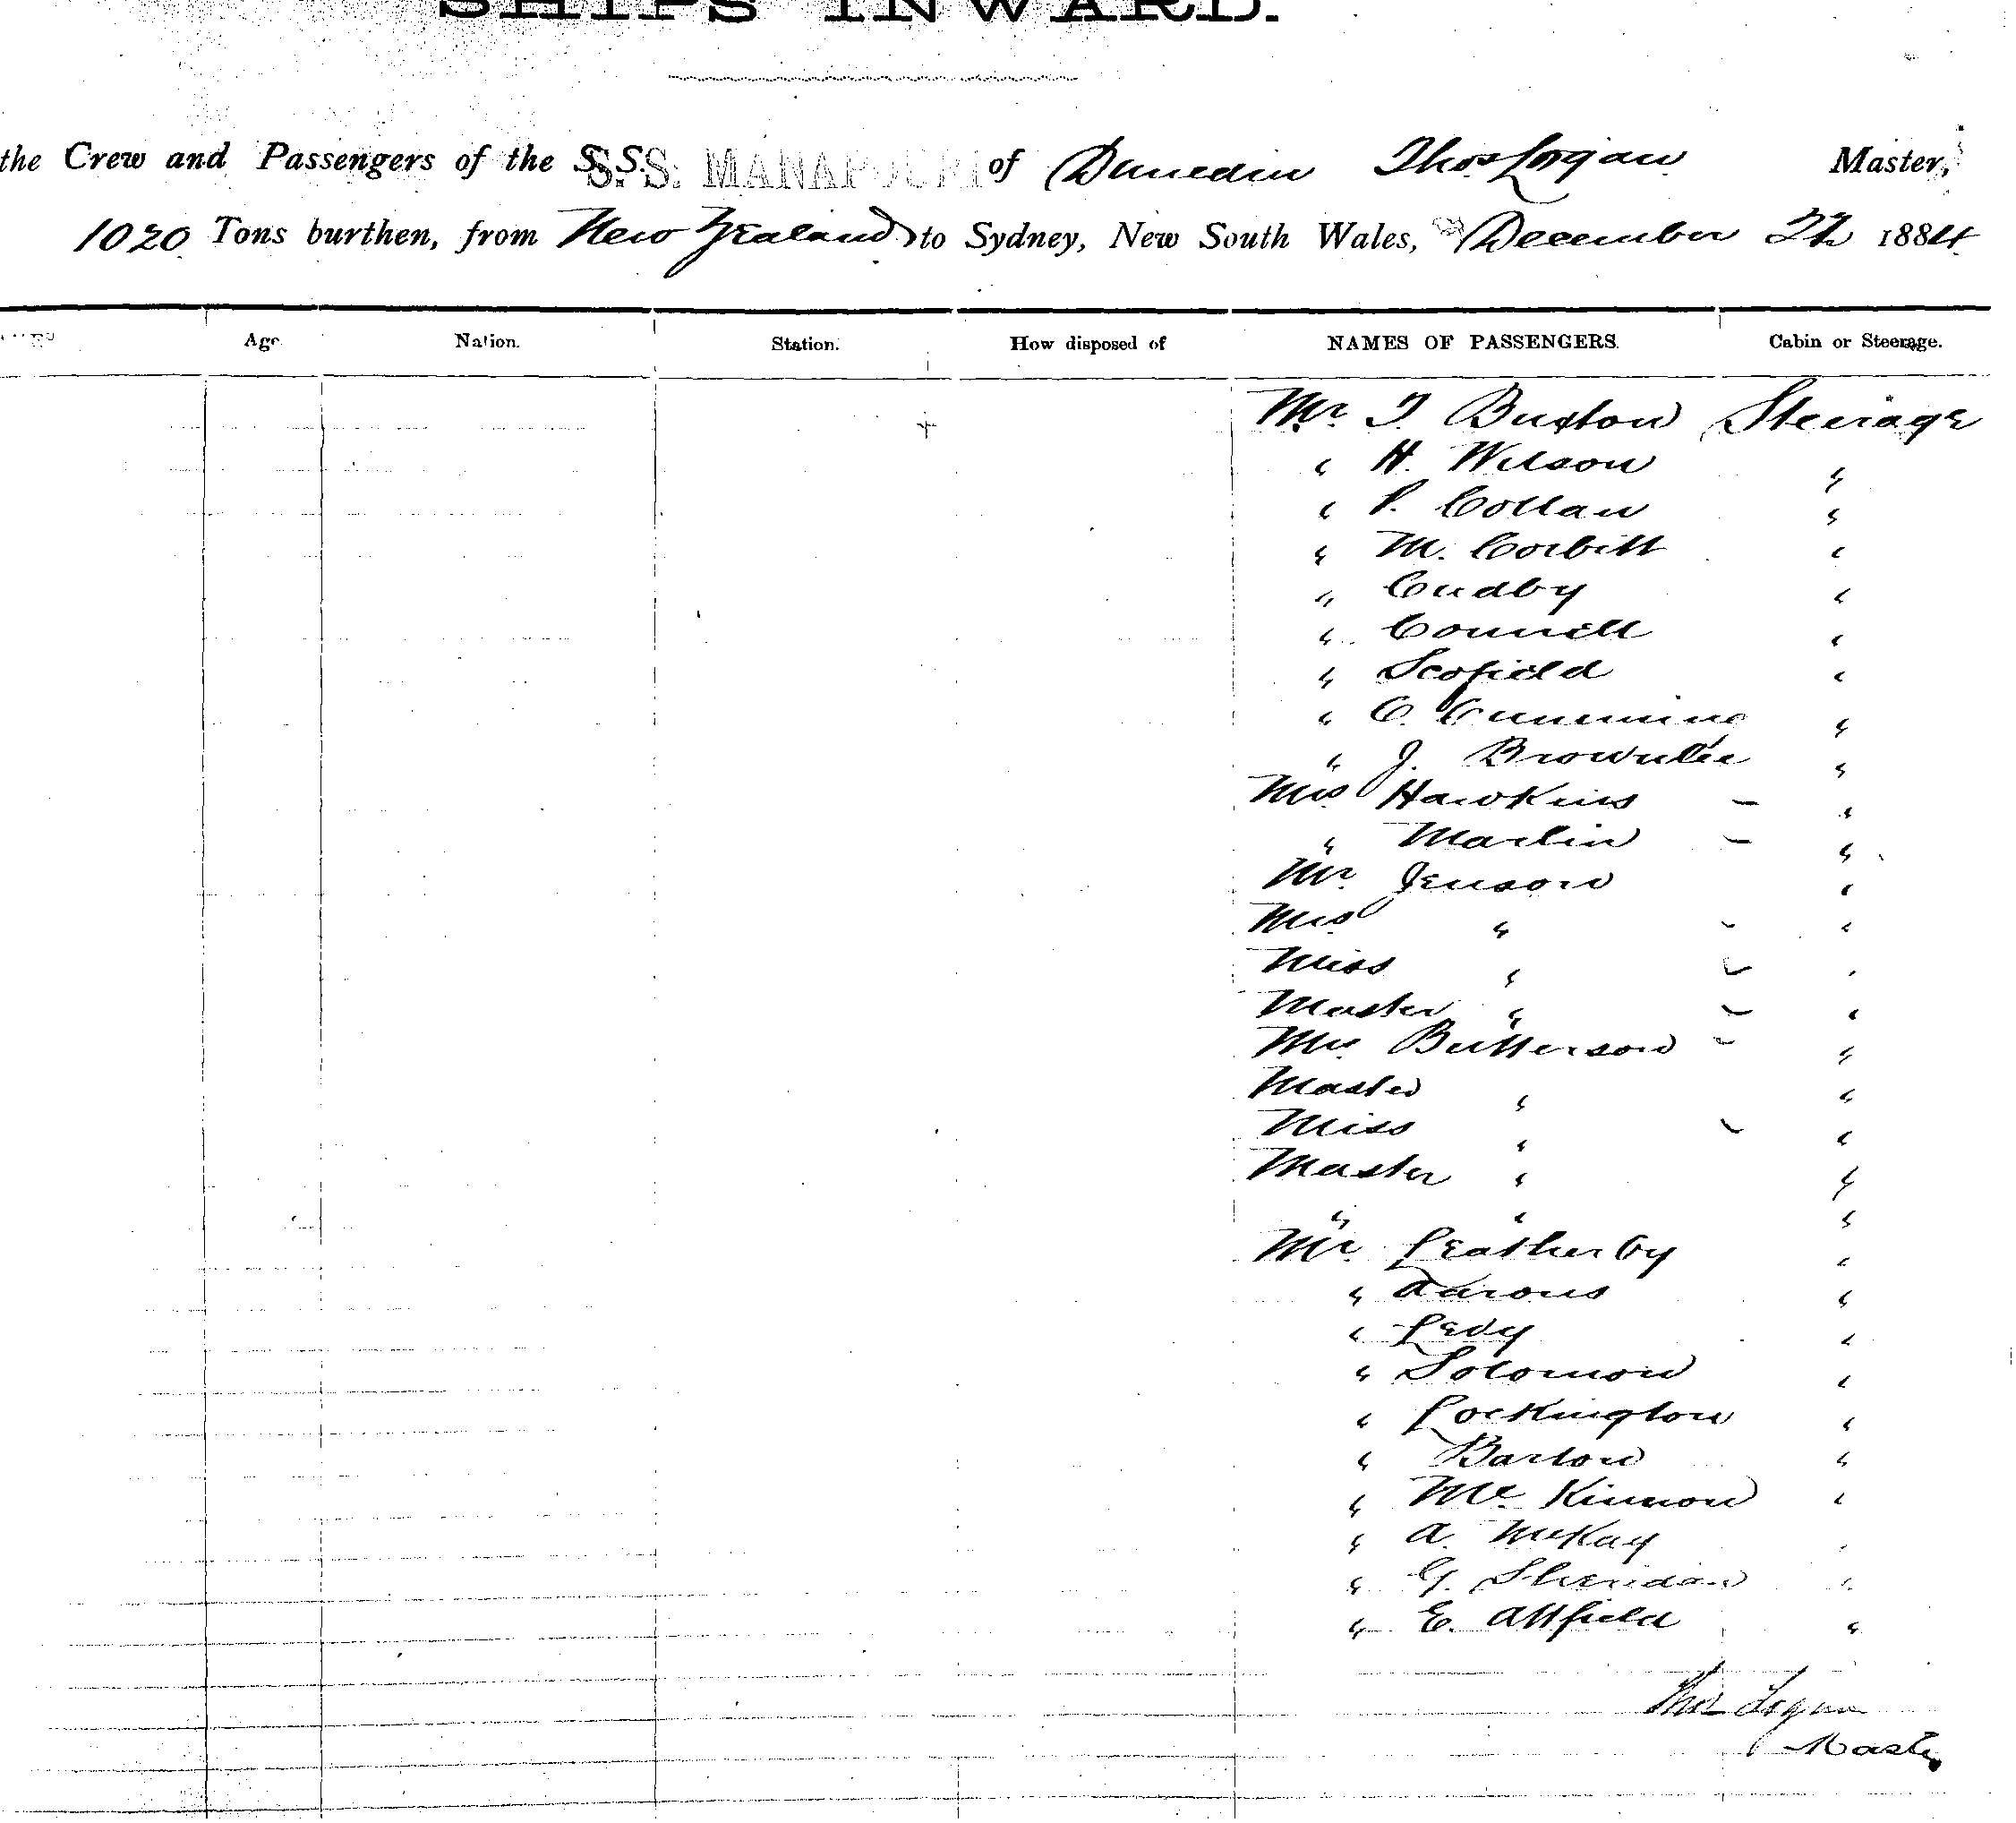 SHIPS INWARD.
the Crew and Passengers of the S.S. S.S. MANAPOURI of Dunedin Thos Logan Master,
1020 Tons burthen, from New Zealand to Sydney, New South Wales, December 22 1884
Age Nation. Station. How disposed of NAMES OF PASSENGERS. Cabin or Steerage.
Mr. T. Buxton Steerage
" H. Wilson "
" P. Collan "
" M. Corbitt "
" Cudby "
" Connell "
" Scofield "
" C. Cumming "
" J. Brownlie "
Mrs Hawkins - "
" Martin - "
Mr. Jenson "
Mrs " - "
Miss " - "
Master " - "
Mrs Butterson - "
Master " "
Miss " - "
Master " "
" " "
Mr. Leatherby "
" Aarons "
" Levy "
" Solomon "
" Lockington "
" Barton "
" Mc Kinnon "
" A. McKay "
" G. Sheridan "
" E. Attfield "
Thos Logan
Master